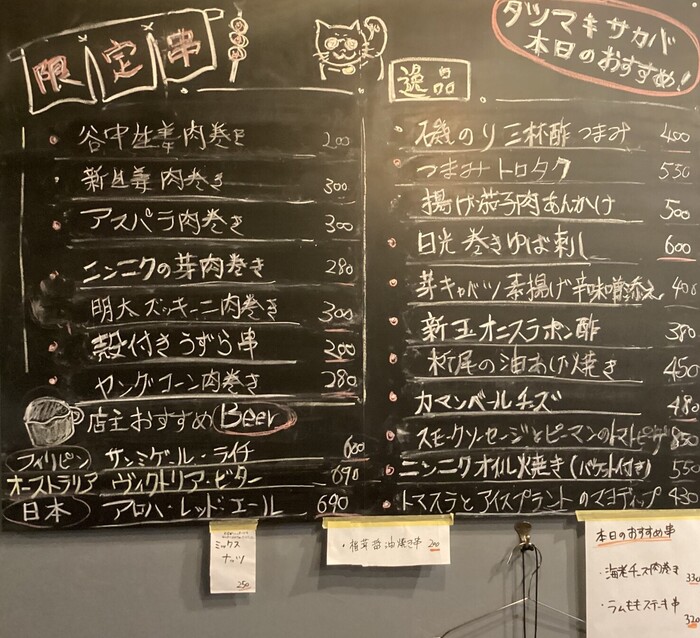 限定串
谷中生姜肉巻き 200
新生姜肉巻き 300
アスパラ肉巻き 300
ニンニクの芽肉巻き 280
明太ズッキーニ肉巻き 300
殻付きうずら串 200
ヤングコーン肉巻き 280
店主おすすめBeer
フィリピン サンミゲール・ライチ 680
オーストラリア ヴィクトリア・ビター 690
日本 アロハ・レッド・エール 690
タツマキサカバ
本日のおすすめ!
逸品
磯のり三杯酢つまみ 400
つまみトロタク 550
揚げ茄子肉あんかけ 500
日光巻きゆば刺し 600
芽キャベツ素揚げ辛味噌添え 400
新玉オニスラポン酢 380
栃尾の油あげ焼き 450
カマンベールチーズ 480
スモークソーセージとピーマンのトマトピザ 850
ニンニクオイル焼き(バケット付き) 550
トマスラとアイスプラントのマヨディップ 430
ミックス
ナッツ
250
・椎茸醤油焼き串 200
本日のおすすめ串
・海老チーズ肉巻き
330
・ラムももステーキ串
330